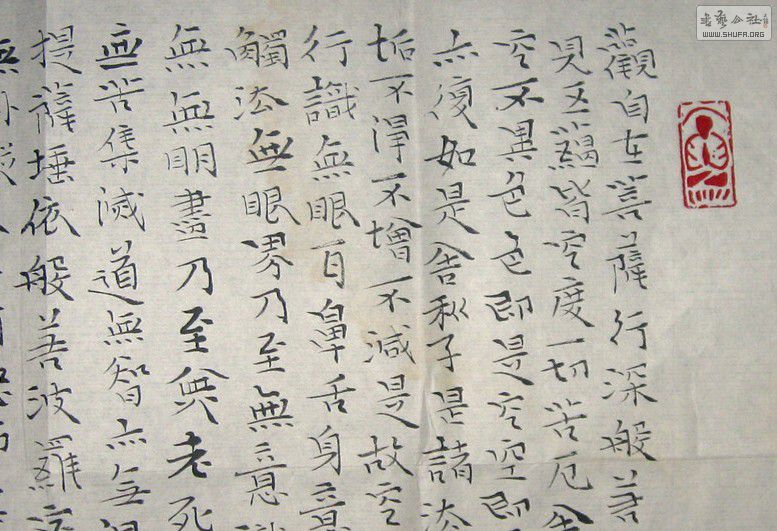 觀自在菩薩行深般若
見五蘊皆空度一切苦厄舍
空不異色色即是空空即
亦復如是舍利子是諸法
垢不淨不增不減是故空
行識無眼耳鼻舌身意
觸法無眼界乃至無意識
無無明盡乃至無老死
無苦集滅道無智亦無得
提薩埵依般若波羅
無
WWW.SHUFA.ORG